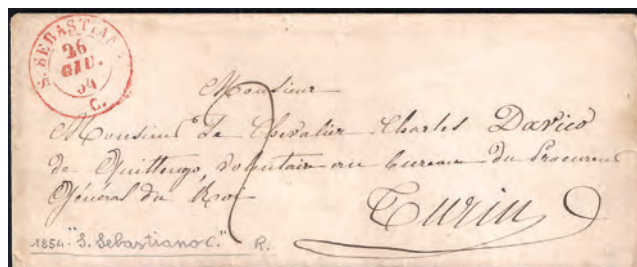 S. SEBASTIANO
26
GIU.
54
C.
Monsieur
Monsieur Le Chevalier Charles Davico
de Quittengo, volontaire au bureau du Procureur
Général du Roi
2
Turin
1854 - "S. Sebastiano C." R.